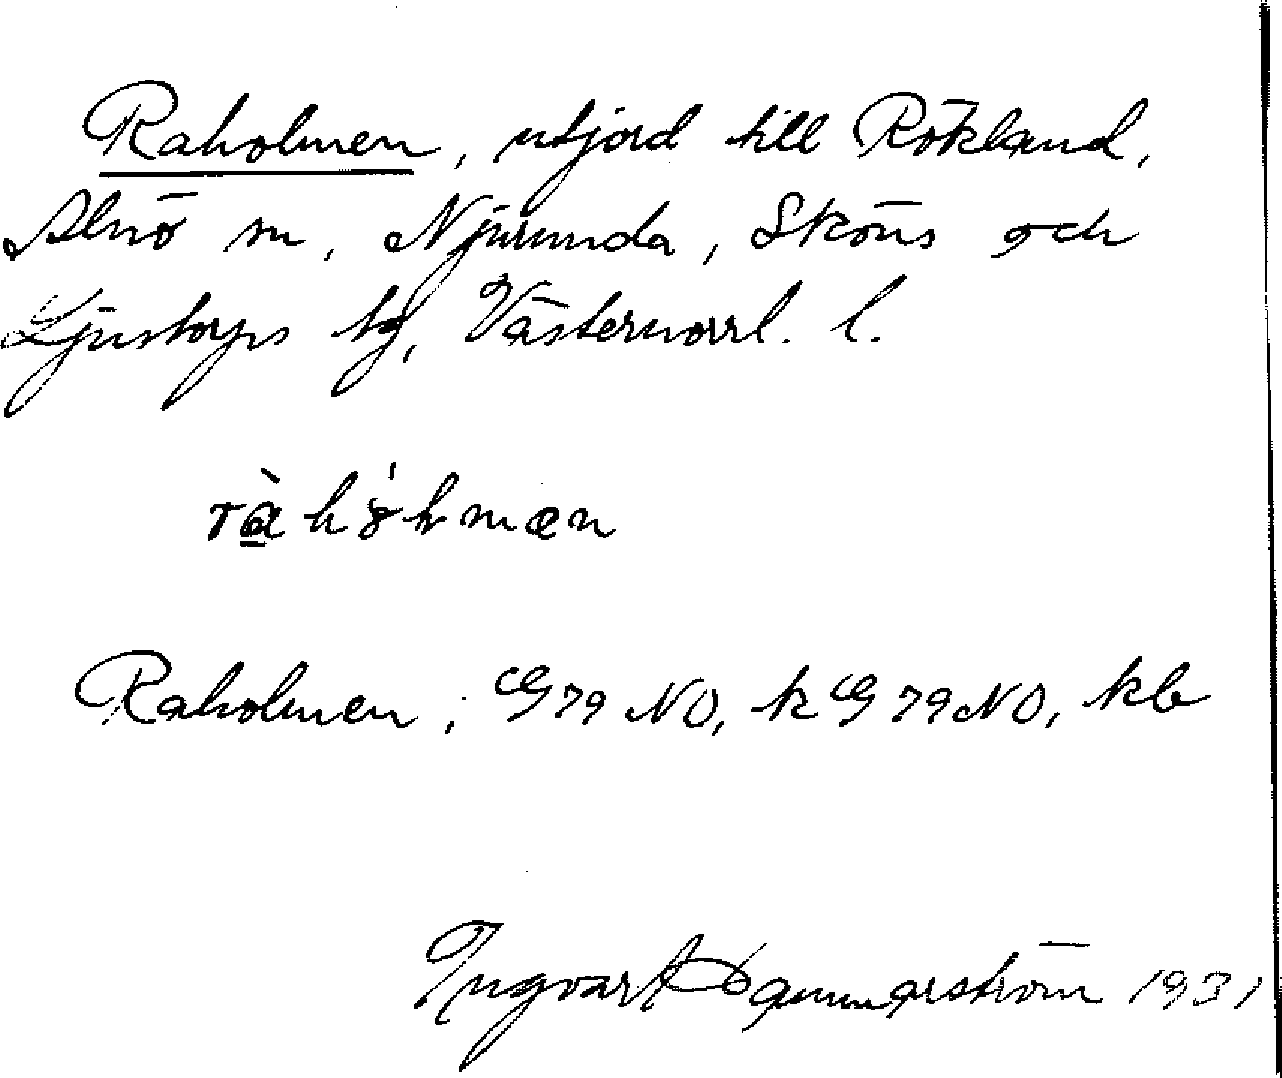 Raholmen, utjord till Rökland,
Alnö sn, Njurunda, Sköns och
Ljustorps tg, Västernorrl. l.
Raholmen; G79 NO, k G79 NO, kb
Ingvart Dammarström 1931